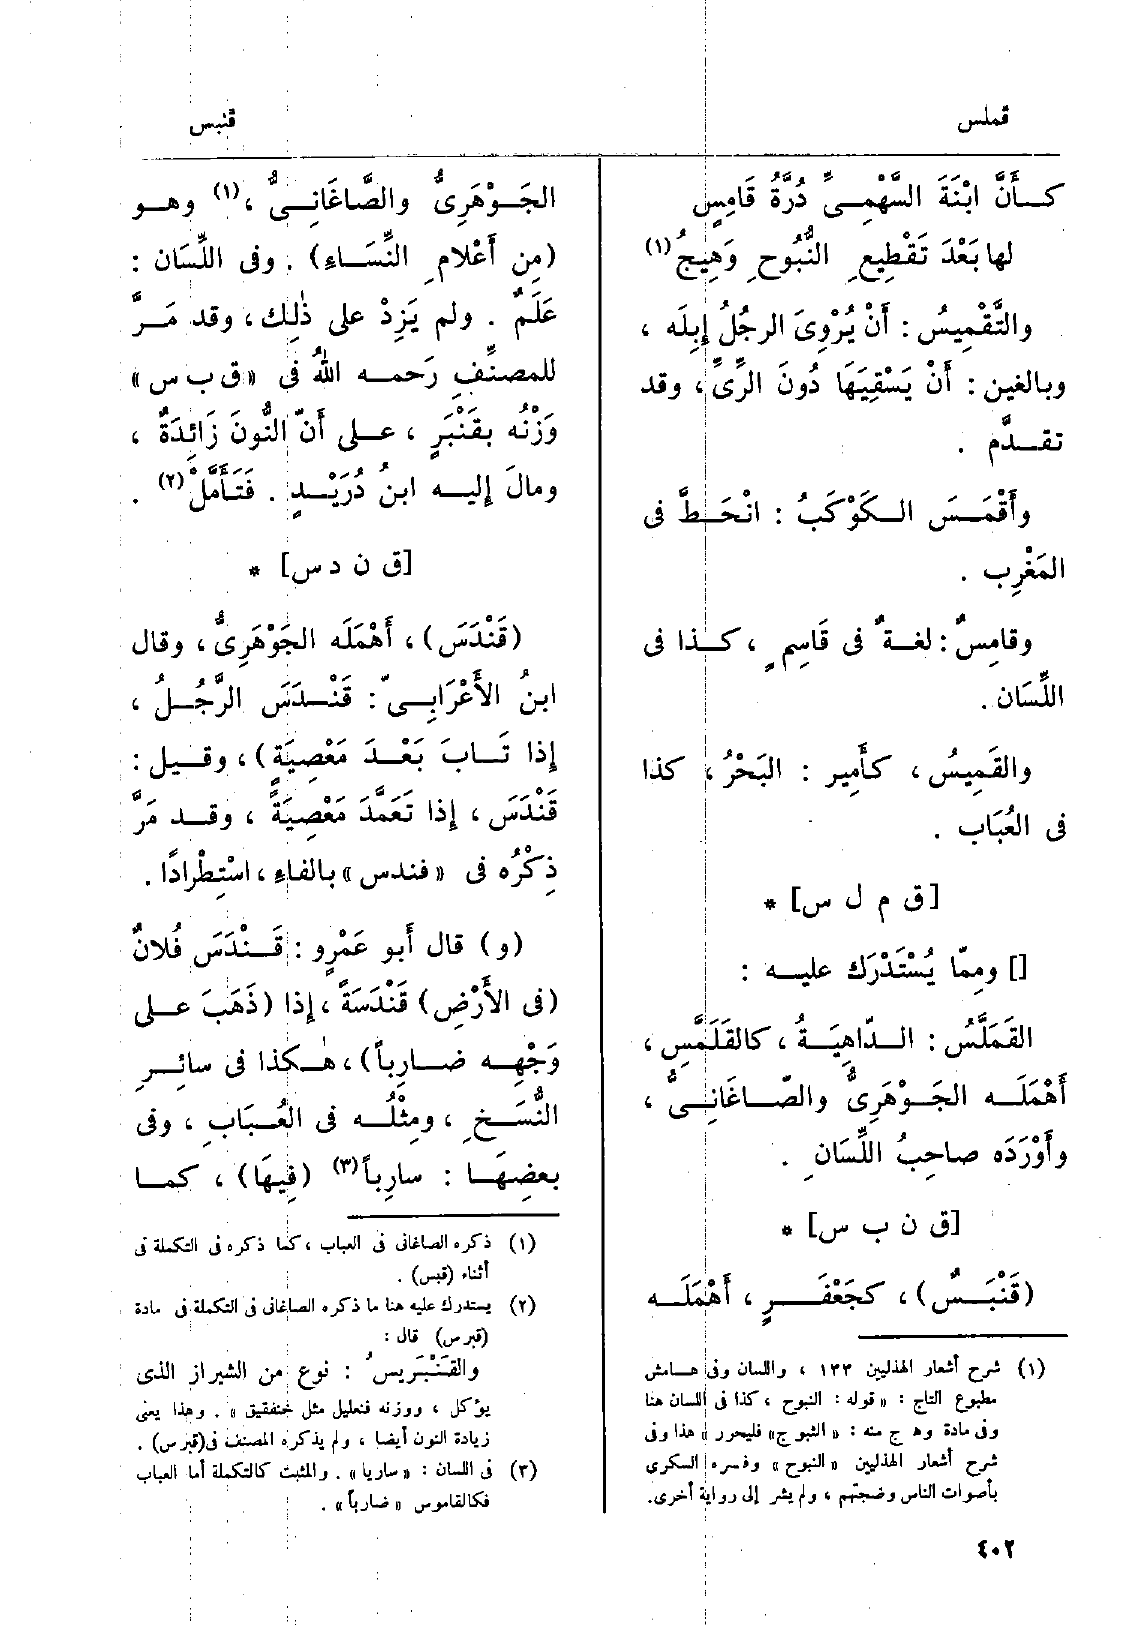 قملس
قنبس
كأَنَّ ابْنَةَ السَّهْمِىِّ دُرَّةُ قَامِسٍ
لها بَعْدَ تَقْطِيعِ النُّبُوحِ وَهِيجُ (١)
والتَّقْمِيسُ : أَنْ يُرْوِىَ الرجُلُ إِبِلَه ،
وبالغين : أَنْ يَسْقِيَهَا دُونَ الرِّىِّ ، وقد
تقدَّم .
وأَقْمَسَ الكَوْكَبُ : انْحَطَّ فى
المَغْرِب .
وقامِسٌ : لغةٌ فى قَاسِمٍ ، كذا فى
اللِّسَان .
والقَمِيسُ ، كأَمِير : البَحْرُ ، كذا
فى العُبَاب .
[ق م ل س] *
[] ومِمّا يُسْتَدْرَك عليه :
القَمَلَّسُ : الدّاهِيَةُ ، كالقَلَمَّس ،
أَهْمَلَه الجَوْهَرِىُّ والصّاغَانِىُّ ،
وأَوْرَدَه صاحِبُ اللِّسَانِ .
[ق ن ب س] *
(قَنْبَسٌ) ، كجَعْفَرٍ ، أَهْمَلَه
(١) شرح أشعار الهذليين ١٣٣ ، واللسان وفى هامش
مطبوع التاج : « قوله : النبوح ، كذا فى اللسان هنا
وفى مادة وهج منه : « الثبوج» فليحرر » هذا وفى
شرح أشعار الهذليين «النبوح» وفسره السكرى
بأصوات الناس وضجتهم ، ولم يشر إلى رواية أخرى.
الجَوْهَرِىُّ والصَّاغَانِىُّ ،(١) وهو
(مِن أَعْلَامِ النِّسَاءِ) . وفى اللِّسَان :
عَلَمٌ . ولم يَزِدْ على ذٰلِك ، وقد مَرَّ
للمصنِّفِ رَحمه اللهُ فى «ق ب س»
وَزْنُه بقَنْبَرٍ ، على أَنّ النُّونَ زَائدَةٌ ،
ومالَ إِليه ابنُ دُرَيْدٍ . فَتَأَمَّلْ(٢) .
[ق ن د س] *
(قَنْدَسَ) ، أَهْمَلَه الجَوْهَرِىُّ ، وقال
ابنُ الأَعْرَابِىّ : قَنْدَسَ الرَّجُلُ ،
إِذا تَابَ بَعْدَ مَعْصِيَةٍ) ، وقيل :
قَنْدَسَ ، إِذا تَعَمَّدَ مَعْصِيَةً ، وقد مَرَّ
ذِكْرُه فى «فندس» بالفاءِ ، اسْتِطْرادًا .
(و) قال أَبو عَمْرٍو : قَنْدَسَ فُلانٌ
(فى الأَرْضِ) قَنْدَسَةً ، إِذا (ذَهَبَ على
وَجْهِه ضارِباً) ، هٰكذا فى سائِرِ
النُّسَخِ ، ومِثْلُه فى العُبَابِ ، وفى
بعضِهَا : سارِباً(٣) (فِيهَا) ، كما
(١) ذكره الصاغانى فى العباب ، كما ذكره فى التكملة فى
أثناء (قبس) .
(٢) يستدرك عليه هنا ما ذكره الصاغانى فى التكملة فى مادة
(قبرس) قال :
والقَنْبَرِيسُ : نوع من الشيراز الذى
يؤكل ، ووزنه فنعليل مثل خنفقيق » . وهذا يعنى
زيادة النون أيضا ، ولم يذكره المصنف فى (قبرس) .
(٣) فى اللسان : «ساريا» . والمثبت كالتكملة أما العباب
فكالقاموس « ضارباً » .
٤٠٢